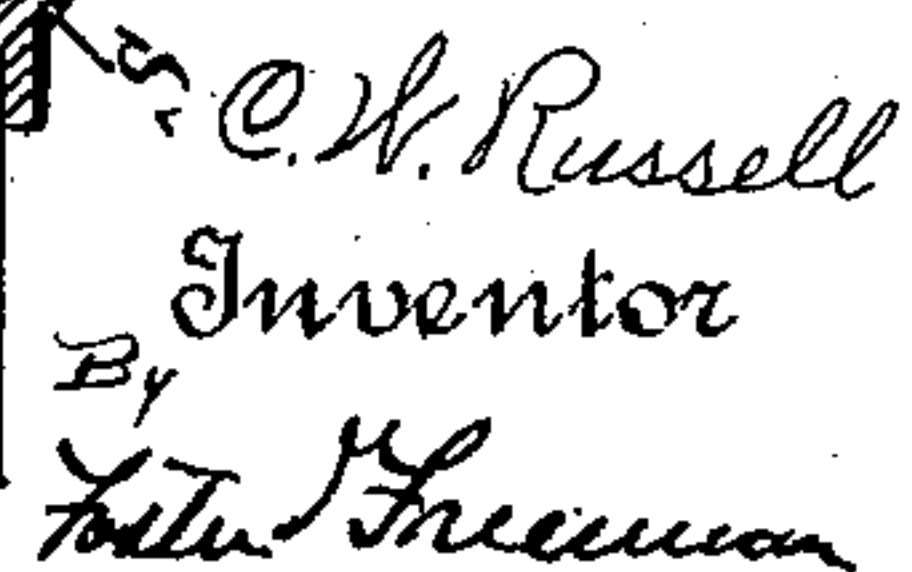 S.
C. W. Russell
Inventor
By
Foster Freeman